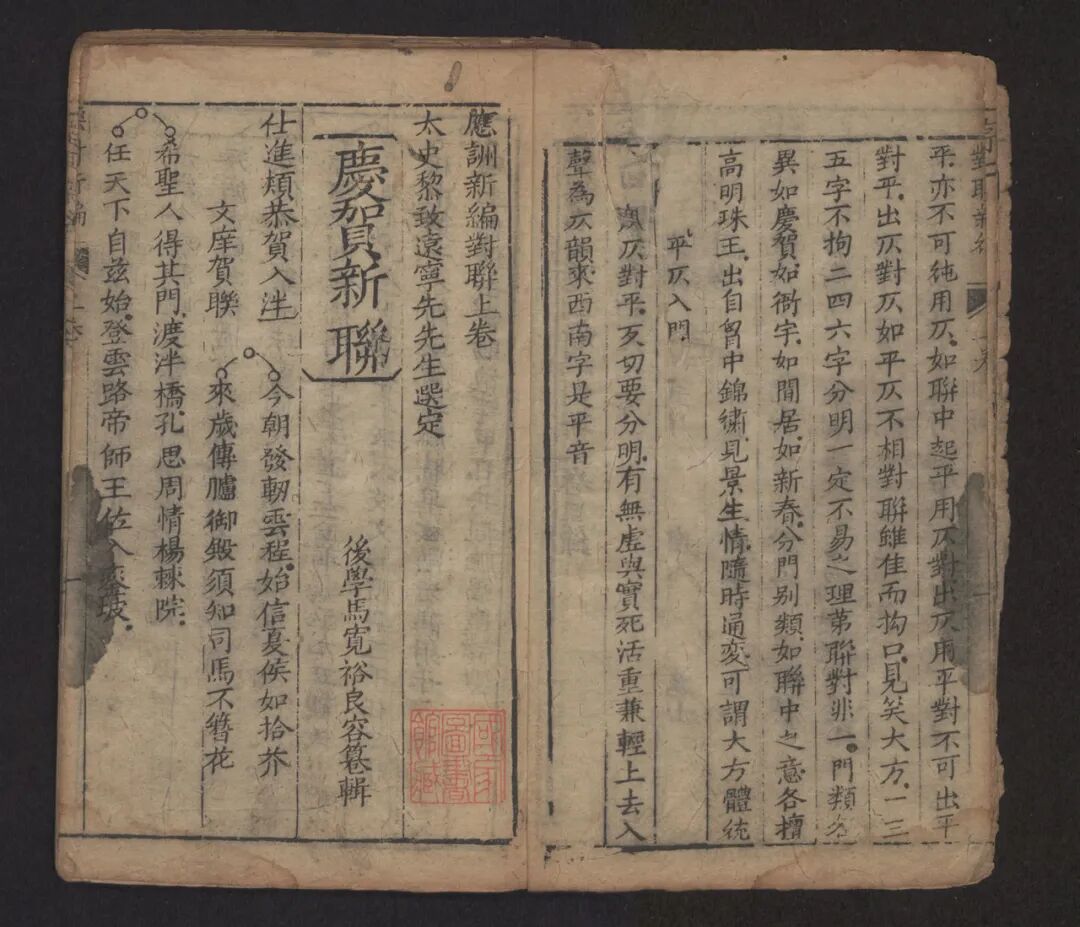 平亦不可純用仄如聯中起平用仄對出仄用平對不可出平
對平出仄對仄如平仄不相對聯雖佳而拘口見笑大方一三
五字不拘二四六字分明一定不易之理第聯對非一門類各
異如慶賀如衙宇如閒居如新春分門別類如聯中之意各擅
高明珠玉出自胷中錦繡見景生情隨時通変可謂大方體統
平仄入門
仄對平歹切要分明有無虛與實死活重兼輕上去入
聲為仄韻東西南字是平音
應詶新編對聯上卷
太史黎致遠寧先先生選定
後學馬寬裕良容纂輯
慶賀新聯
仕進類恭賀入泮
今朝發軔雲程始信夏侯如拾芥
文庠賀聯
來歲傳臚御殿須知司馬不簪花
希聖人得其門渡泮橋孔思周情楊棘院
任天下自兹始登雲路帝師王佐入鑾坡
國家圖書館藏